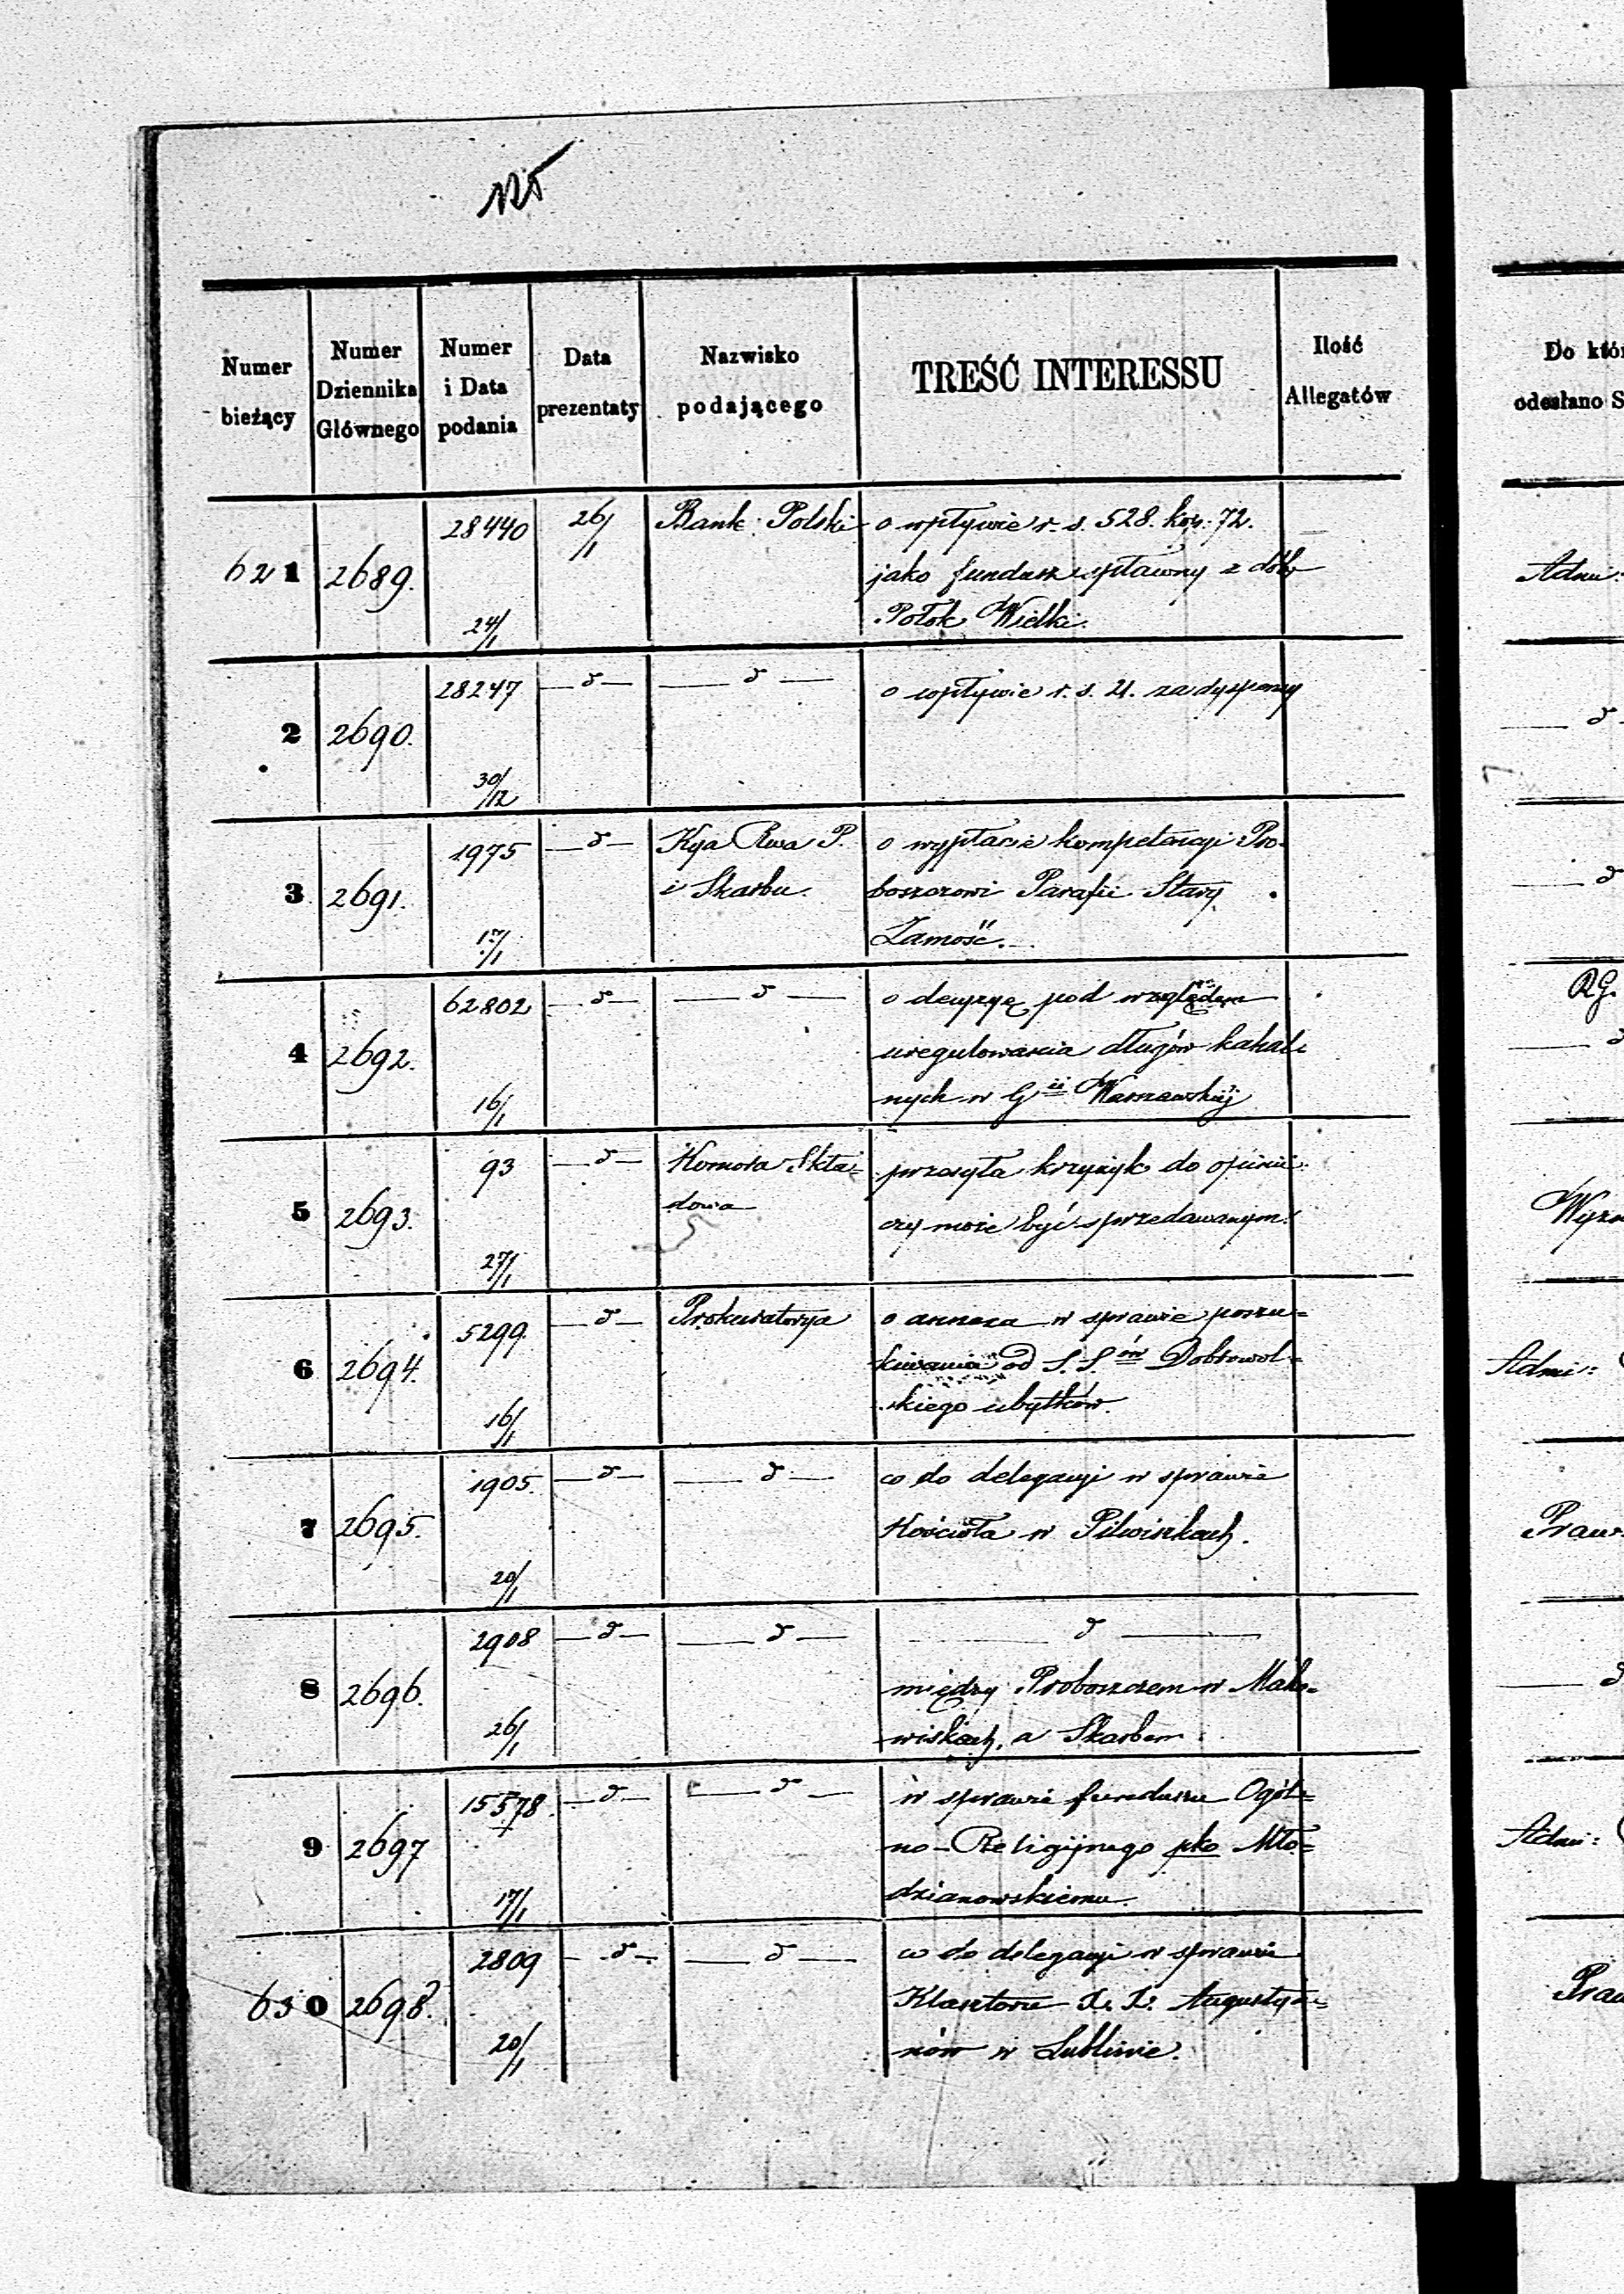 Numer bieżący | Numer Dziennika Głównego | Numer i Data podania | Data prezentaty | Nazwisko podającego | TREŚĆ INTERESSU | Ilość Allegatów
Do któr
odesłano S
621 | 2689. | 28440 24/1 | 26/1 | Bank Polski | o wpływie r. s. 528. kop. 72.
jako fundusz spławny z dóbr
Potok Wielki.
Adm:
2 | 2690. | 28247 30/12 | — d — | — d — | o wpływie r. s. 21. za dyspensy
— d
3 | 2691. | 1975 17/1 | — d — | Kya Rwa P. i Skarbu | o wypłacie kompetencyi Pro-
boszczowi Parafii Stary
Zamość.
— d
4 | 2692. | 62802 16/1 | — d — | — d — | o decyzyę pod względem
uregulowania długów kahal-
nych w Gii Warszawskiéj
RG.
— d
5 | 2693. | 93 27/1 | — d — | Komora Skła-dowa | przesyła krzyżyk do opinii
czy może być sprzedawanym.
Wyzn
6 | 2694. | 5299. 16/1 | — d — | Prokuratorya | o annexa w sprawie poszu-
kiwania od S. Sów Dobrowol-
skiego ubytków.
Admi:
7 | 2695. | 1905. 20/1 | — d — | — d — | co do delegacyi w sprawie
Kościoła w Pilwiszkach.
Praw
8 | 2696. | 2908 26/1 | — d — | — d — | — d —
między Proboszczem w
a Skarbem
— d
9 | 2697 | 15578. 17/1 | — d — | — d — | w sprawie funduszu Ogól-
no-Religijnego pko Mło-
dzianowskiemu.
Admi:
630 | 2698. | 2809 20/1 | — d — | — d — | co do delegacyi w sprawie
Klasztoru X. X. Augustya-
nów w Lublinie.
Praw